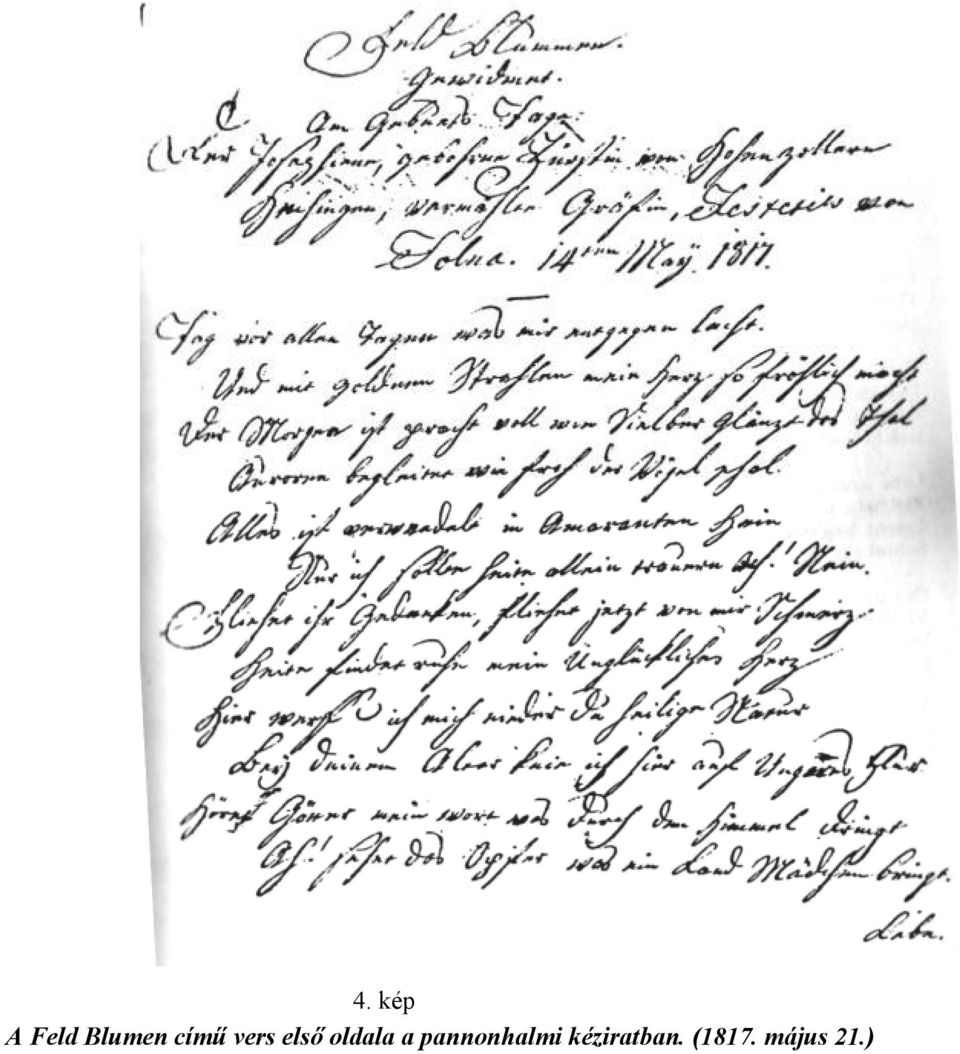 Feld Blummen.
Gewidmet.
Am Geburts Tage.
Der Josephiene, gebohrne Fürstin von Hohenzollern
Hechingen, vermählte Gräfin, Festetits von
Tolna. 14ten May 1817.
Tag vor allen Tagen was mir entgegen lacht.
Und mit goldnem Strahlen mein Herz so fröhlich macht
Der Morgen ist pracht voll wie Sielber glänzt des Thal
Auroren begleitet wie froh der Vögel schal.
Alles ist verwandelt in Amaranten Hain
Nur ich sollte heite allein trauern Ach! Nein.
Fliehet ihr Gedanken, fliehet jetzt von mir Schmerz
Heite findet ruhe mein Unglückliches Herz
Hier werf ich mich nieder du heilige Natur
Bey deinem Alter knie ich hier auf Ungarns Flur
Höret Götter mein wort was durch den Himmel dringt
Ach! sehet das Opfer was ein Land Mädchen bringt.
Lebe.
4. kép
A Feld Blumen című vers első oldala a pannonhalmi kéziratban. (1817. május 21.)